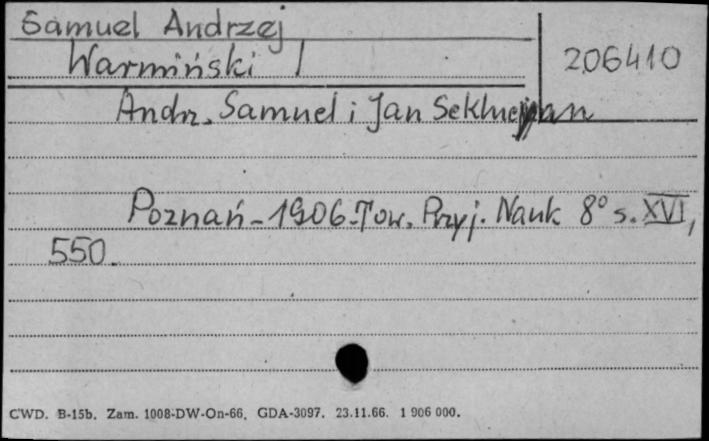 Samuel Andrzej
Warmiński I
206410
Andrz. Samuel i Jan
Poznań - 1906. Tow. Przyj. Nauk 8° s. XVI,
550.
CWD. B-15b. Zam. 1008-DW-On-66, GDA-3097. 23.11.66. 1 906 000.